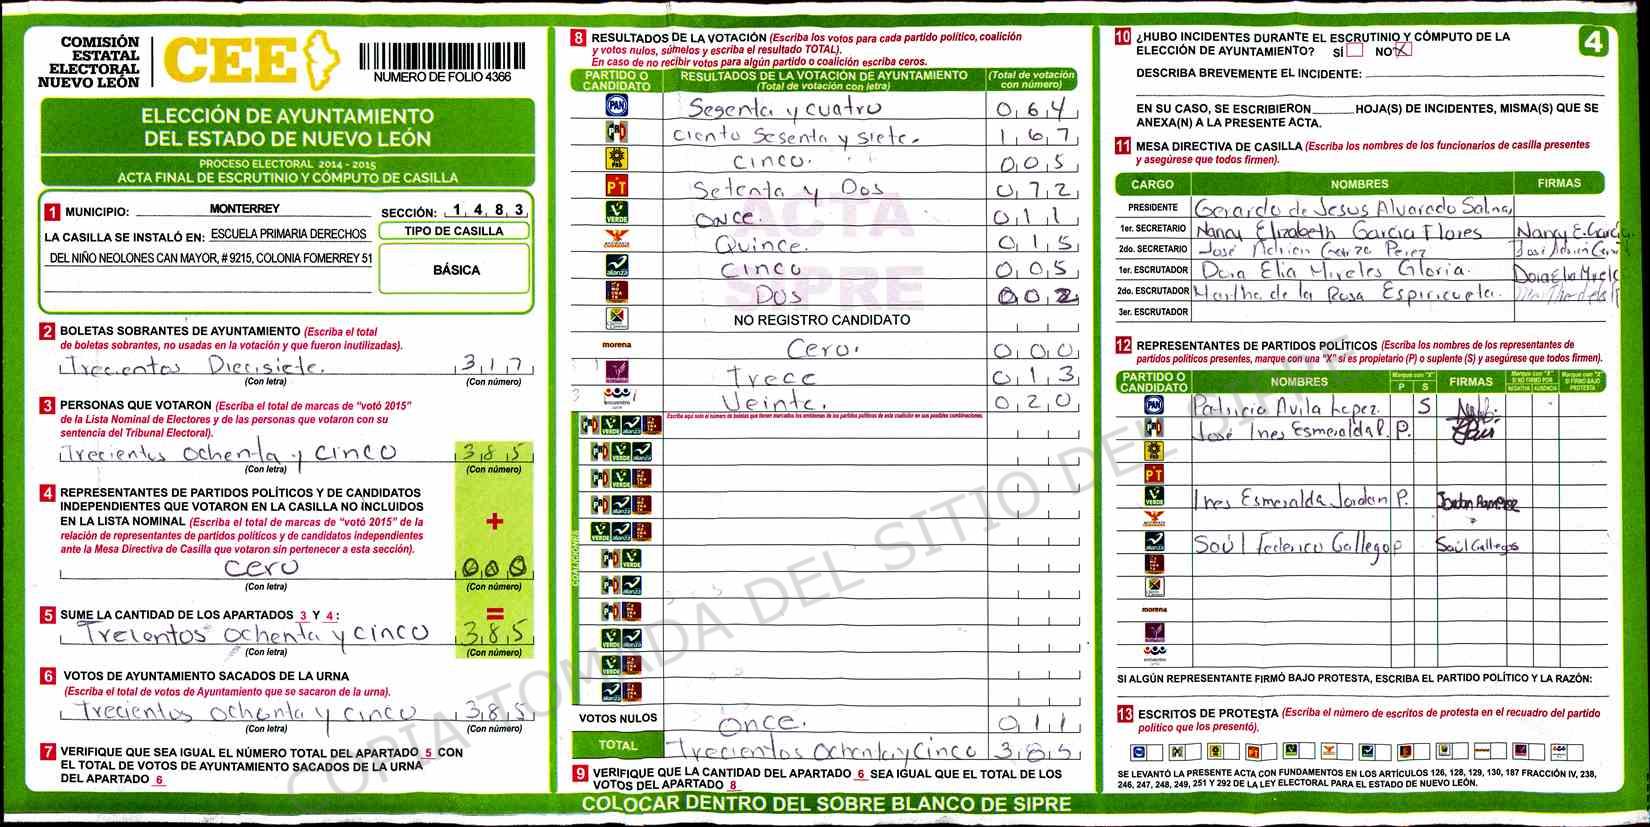 COMISIÓN
ESTATAL
ELECTORAL
NUEVO LEÓN
CEE
NUMERO DE FOLIO 4366
ELECCIÓN DE AYUNTAMIENTO
DEL ESTADO DE NUEVO LEÓN
PROCESO ELECTORAL 2014 - 2015
ACTA FINAL DE ESCRUTINIO Y CÓMPUTO DE CASILLA
1 MUNICIPIO: MONTERREY SECCIÓN: 1 4 8 3
LA CASILLA SE INSTALÓ EN: ESCUELA PRIMARIA DERECHOS
DEL NIÑO NEOLONES CAN MAYOR, # 9215, COLONIA FOMERREY 51
TIPO DE CASILLA
BÁSICA
2 BOLETAS SOBRANTES DE AYUNTAMIENTO (Escriba el total
de boletas sobrantes, no usadas en la votación y que fueron inutilizadas).
Trecientos Diecisiete. 3 1 7
(Con letra) (Con número)
3 PERSONAS QUE VOTARON (Escriba el total de marcas de "votó 2015"
de la Lista Nominal de Electores y de las personas que votaron con su
sentencia del Tribunal Electoral).
Trecientos Ochenta y cinco 3 8 5
(Con letra) (Con número)
4 REPRESENTANTES DE PARTIDOS POLÍTICOS Y DE CANDIDATOS
INDEPENDIENTES QUE VOTARON EN LA CASILLA NO INCLUIDOS
EN LA LISTA NOMINAL (Escriba el total de marcas de "votó 2015" de la
relación de representantes de partidos políticos y de candidatos independientes
ante la Mesa Directiva de Casilla que votaron sin pertenecer a esta sección).
+
Cero 0 0 0
(Con letra) (Con número)
5 SUME LA CANTIDAD DE LOS APARTADOS 3 Y 4 : =
Trecientos Ochenta y cinco 3 8 5
(Con letra) (Con número)
6 VOTOS DE AYUNTAMIENTO SACADOS DE LA URNA
(Escriba el total de votos de Ayuntamiento que se sacaron de la urna).
Trecientos Ochenta y cinco 3 8 5
(Con letra) (Con número)
7 VERIFIQUE QUE SEA IGUAL EL NÚMERO TOTAL DEL APARTADO 5 CON
EL TOTAL DE VOTOS DE AYUNTAMIENTO SACADOS DE LA URNA
DEL APARTADO 6
8 RESULTADOS DE LA VOTACIÓN (Escriba los votos para cada partido político, coalición
y votos nulos, súmelos y escriba el resultado TOTAL).
En caso de no recibir votos para algún partido o coalición escriba ceros.
PARTIDO O CANDIDATO
RESULTADOS DE LA VOTACIÓN DE AYUNTAMIENTO
(Total de votación con letra)
(Total de votación con número)
PAN Sesenta y cuatro 0 6 4
PRI Ciento Sesenta y siete. 1 6 7
PRD Cinco. 0 0 5
PT Setenta y Dos 0 7 2
VERDE Once. 0 1 1
Quince. 0 1 5
alianza Cinco 0 0 5
Dos 0 0 2
NO REGISTRO CANDIDATO
morena Cero. 0 0 0
Trece 0 1 3
encuentro Veinte. 0 2 0
Escriba aquí solo el número de boletas que tienen marcados los emblemas de los partidos políticos de esta coalición en sus posibles combinaciones.
COALICIONES
VOTOS NULOS Once. 0 1 1
TOTAL Trecientos Ochenta y Cinco 3 8 5
9 VERIFIQUE QUE LA CANTIDAD DEL APARTADO 6 SEA IGUAL QUE EL TOTAL DE LOS
VOTOS DEL APARTADO 8
COLOCAR DENTRO DEL SOBRE BLANCO DE SIPRE
ACTA
SIPRE
COPIA TOMADA DEL SITIO DEL SIPRE
10 ¿HUBO INCIDENTES DURANTE EL ESCRUTINIO Y CÓMPUTO DE LA
ELECCIÓN DE AYUNTAMIENTO? SÍ NO X
4
DESCRIBA BREVEMENTE EL INCIDENTE:
EN SU CASO, SE ESCRIBIERON HOJA(S) DE INCIDENTES, MISMA(S) QUE SE
ANEXA(N) A LA PRESENTE ACTA.
11 MESA DIRECTIVA DE CASILLA (Escriba los nombres de los funcionarios de casilla presentes
y asegúrese que todos firmen).
CARGO NOMBRES FIRMAS
PRESIDENTE Gerardo de Jesus Alvarado Salinas
1er. SECRETARIO Nancy Elizabeth Garcia Flores Nancy E. Garcia
2do. SECRETARIO José Adrian Garza Perez
1er. ESCRUTADOR Dora Elia Mireles Gloria. Dora Elia Mirele
2do. ESCRUTADOR Martha de la Rosa Espiricueta.
3er. ESCRUTADOR
12 REPRESENTANTES DE PARTIDOS POLÍTICOS (Escriba los nombres de los representantes de
partidos políticos presentes, marque con una "X" si es propietario (P) o suplente (S) y asegúrese que todos firmen).
PARTIDO O CANDIDATO NOMBRES Marque con "X" P S FIRMAS Marque con "X" SI NO FIRMÓ POR NEGATIVA AUSENCIA Marque con "X" SI FIRMÓ BAJO PROTESTA
PAN Patricia Avila Lopez. S
PRI José Ines Esmeralda P. P.
PRD
PT
VERDE Ines Esmeralda Jordan P. Jordan Ramirez
alianza Saúl Federico Gallegos P Saúl Gallegos
morena
encuentro
SI ALGÚN REPRESENTANTE FIRMÓ BAJO PROTESTA, ESCRIBA EL PARTIDO POLÍTICO Y LA RAZÓN:
13 ESCRITOS DE PROTESTA (Escriba el número de escritos de protesta en el recuadro del partido
político que los presentó).
SE LEVANTÓ LA PRESENTE ACTA CON FUNDAMENTOS EN LOS ARTÍCULOS 126, 128, 129, 130, 187 FRACCIÓN IV, 238,
246, 247, 248, 249, 251 Y 292 DE LA LEY ELECTORAL PARA EL ESTADO DE NUEVO LEÓN.